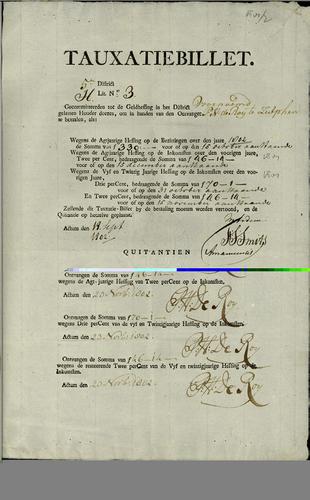 TAUXATIEBILLET.
5e District
Lit. No. 3
Gecommitteerden tot de Geldheffing in het District
gelieven Houder dezes, om in handen van den Ontvanger
te betalen, als:
Wegens de Agtjarige Heffing op de Bezittingen over den jaare, 1802
de Somma van ƒ330 — voor of op den 15 october aanstaande
Wegens de Agtjarige Heffing op de Inkomsten over den voorigen jaare,
Twee per Cent, bedraagende de Somma van ƒ46-14-
voor of op den 15 december aanstaande
Wegens de Vyf en Twintig jaarige Heffing op de Inkomsten over den voo-
rigen Jaare,
Drie perCent, bedraagende de Somma van ƒ70-1-
voor of op den 31 october aanstaande
En Twee perCent, bedraagende de Somma van ƒ46-14-
voor of op den 15 november aanstaande
Zullende dit Tauxatie-Billet by de betaaling moeten worden vertoond, en de
Quitantie op hetzelve geplaatst.
Actum den 18 Sept
1802
QUITANTIEN
Ontvangen de Somma van ƒ46-14-
wegens de Agt-jarige Heffing Twee per Cent op de Inkomsten.
Actum den 23 Novb. 1802.
P. H. De Roy
Ontvangen de Somma van ƒ70-1-
wegens Drie perCent van de Vyf en Twintigjaarige Heffing op de Inkomsten.
Actum den 23 Novb. 1802.
P. H. De Roy
Ontvangen de Somma van ƒ46-14-
wegens de resteerende Twee perCent van de Vyf en twintigjaarige Heffing op de
Inkomsten.
Actum den 23 Novb. 1802.
P. H. De Roy